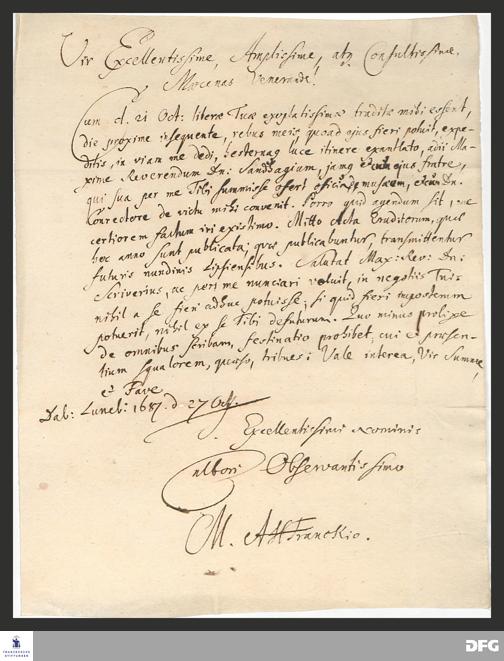 Vir Excellentissime, Amplissime, atq3 Consultissime,
Mæcenas Venerande!
Cum d. 21 Oct: literæ Tuæ exoptatissimæ traditæ mihi essent,
die proxime insequente, rebus meis quoad ejus fieri potuit, expe-
ditis, in viam me dedi, hesternaq luce itinere exantlato, adii Ma-
xime Reverendum Dn: Sandhagium, jamq cum ejus fratre,
qui sua per me Tibi summisse offert officia, musæum, cum Dn.
Conrectore de victu mihi convenit. Porro quid agendum sit, me
certiorem factum iri existimo. Mitto Acta Eruditorum, quæ
hoc anno sunt publicata; quæ publicabuntur, transmittentur
futuris nundinis Lipsiensibus. Salutat Max: Rev: Dn:
Scriverius, ac per me nunciari voluit, in negotiis Tuis
nihil a se fieri adhuc potuisse; si quid fieri impostorum
potuerit, nihil ex se Tibi defuturum. Quo minus prolixe
de omnibus scribam, festinatio prohibet, cui & præsen-
tium squalorem, quæso, tribues; Vale interea, Vir Summe,
& Fave
Dab: Luneb: 1687. d. 27 Oct.
Excellentissimi Nominis
Cultori Observantissimo
M. AHFranckio.
FRANCKESCHE
STIFTUNGEN
DFG